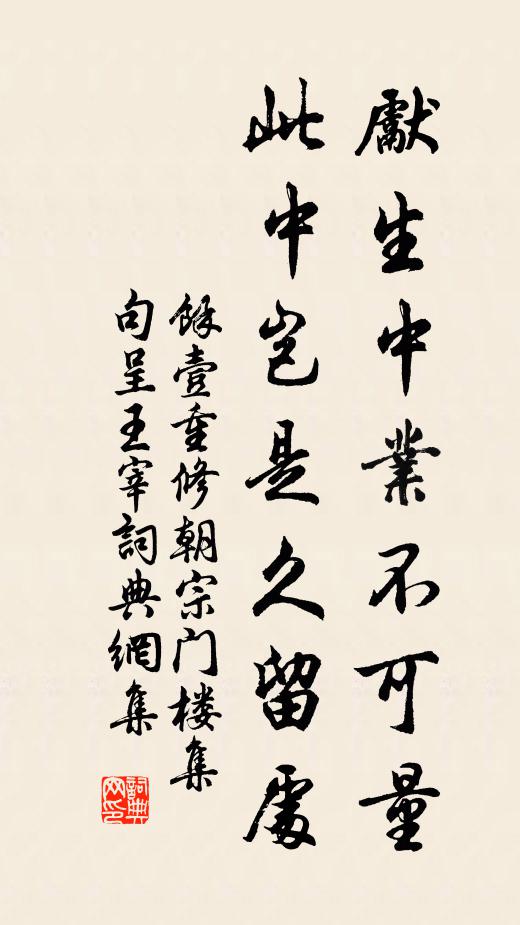 獻生中業不可量
此中豈是久留處
餘壹重修朝宗门楼集
句呈王宰詞典網集
詞典
网印